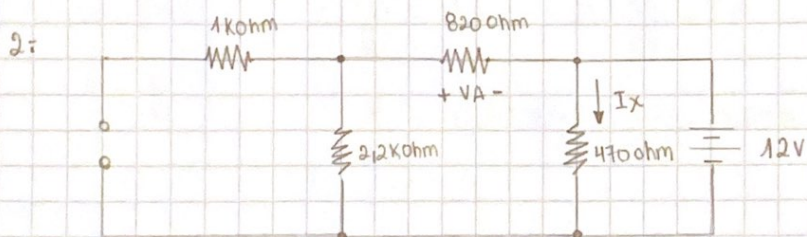 2:
1Kohm
820ohm
+ VA -
Ix
2,2Kohm
470ohm
12V